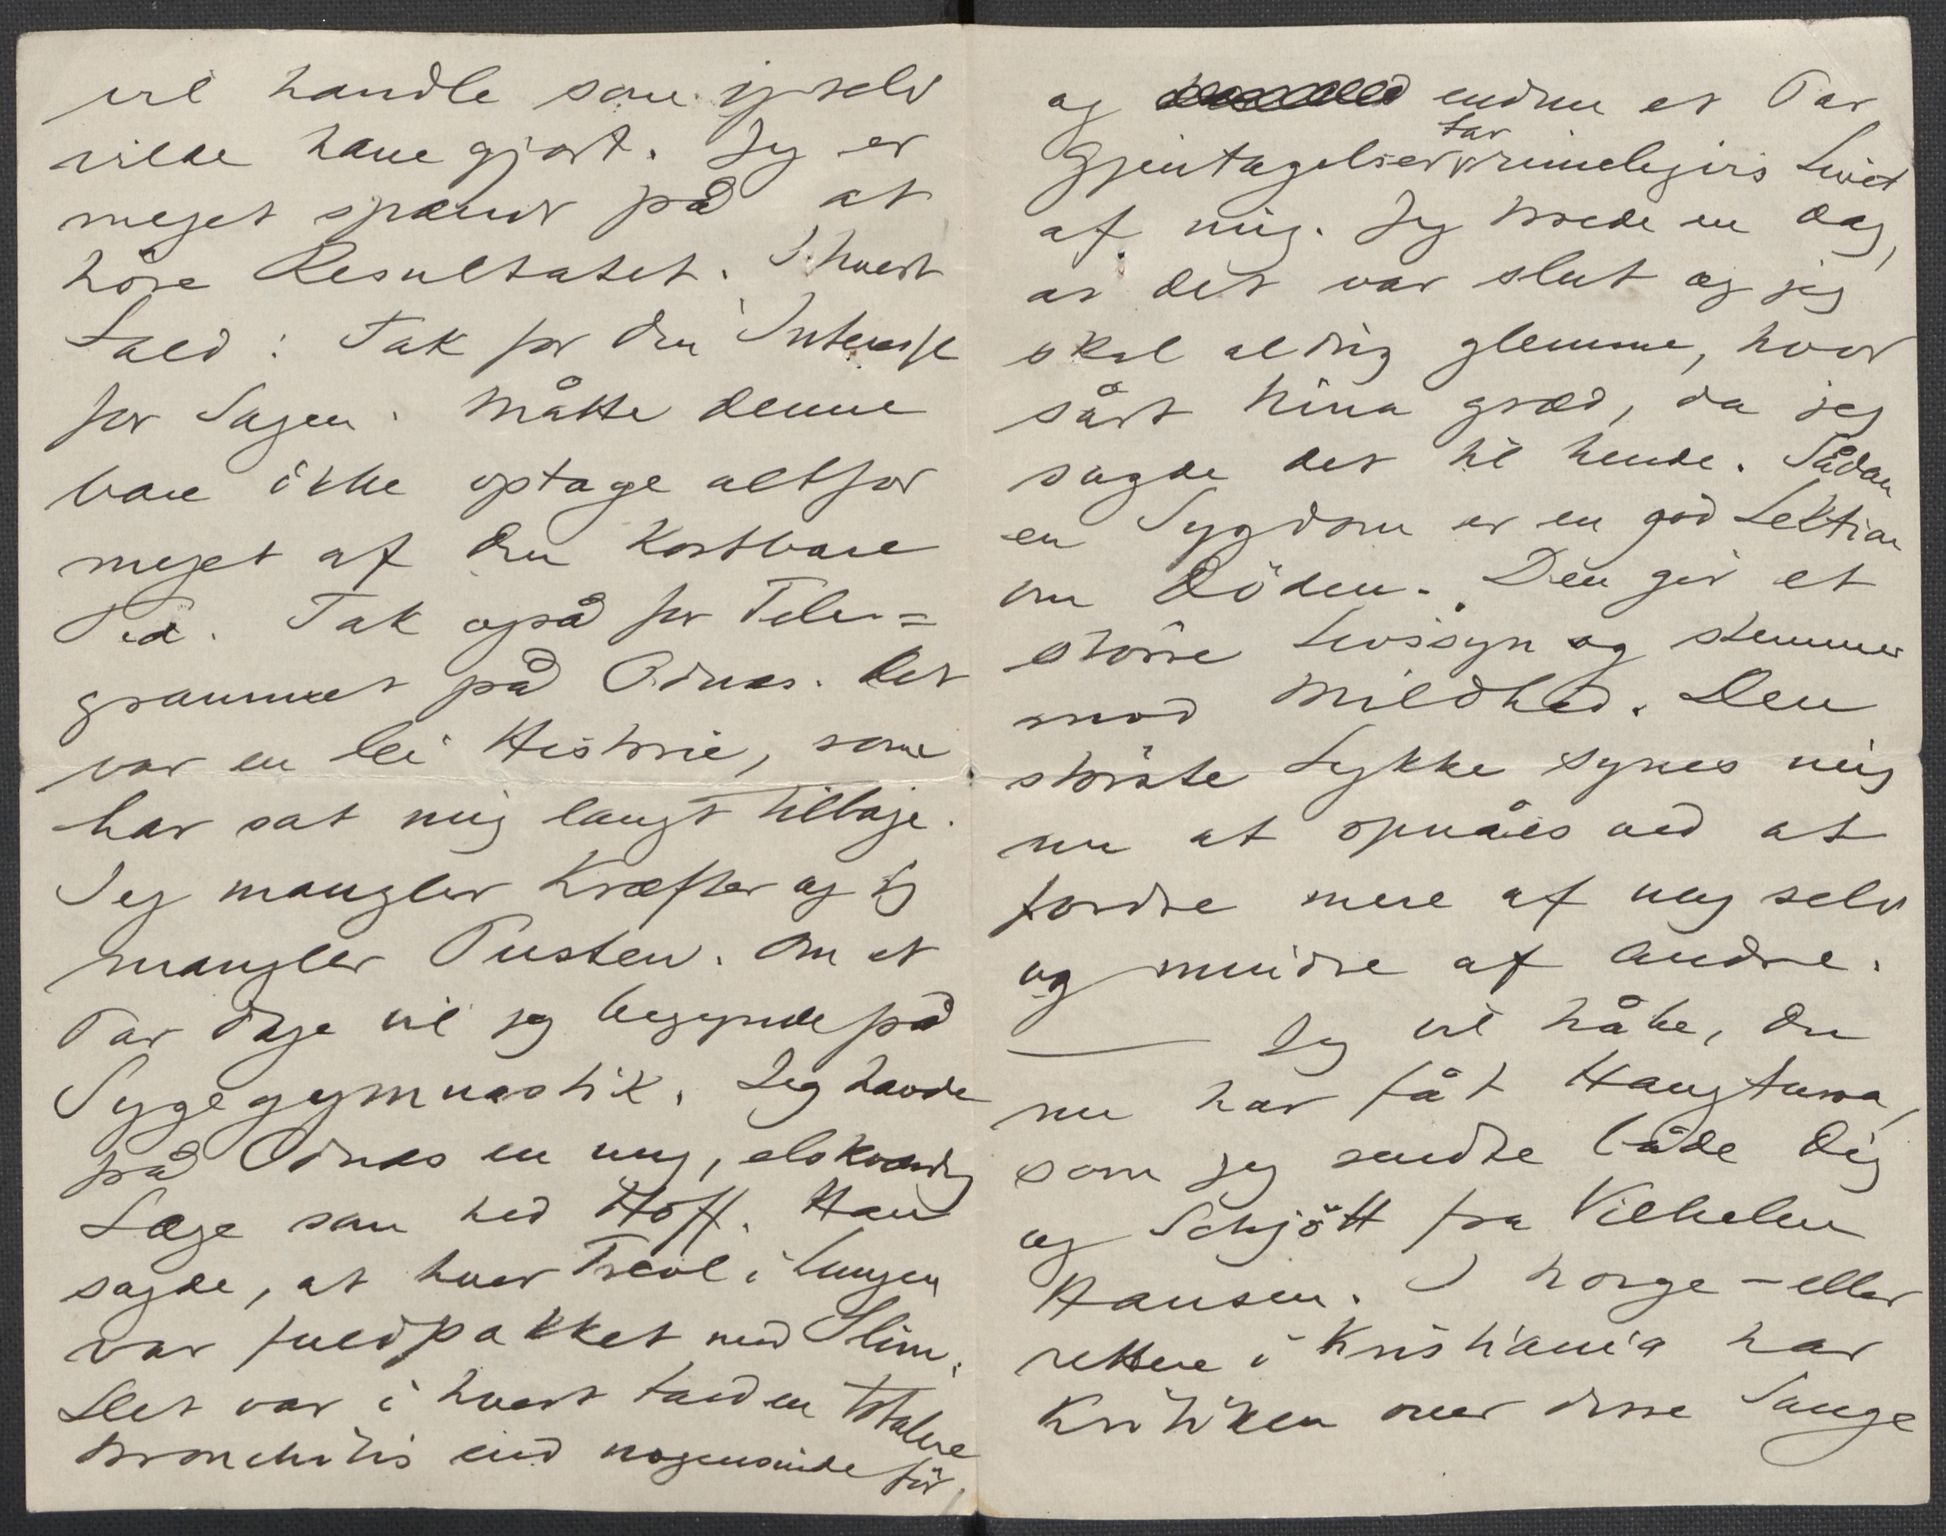 vil handle som jeg selv
vilde have gjort. Jeg er
meget spændt på at
høre Resultatet. I hvert
Fald: Tak for din Interesse
for Sagen. Måtte denne
bare ikke optage altfor
meget af din kostbare
Tid. Tak også for Tele=
grammet på Odnæs. Det
var en lei Historie, som
har sat mig langt tilbage.
Jeg mangler Kræfter og jeg
mangler Pusten. Om et
Par Dage vil jeg begynde på
Sygegymnastik. Jeg havde
på Odnæs en ung, elskværdig
Læge som hed Hoff. Han
sagde, at hver Trevl i Lungen
var fuldpakket med Slim.
Det var i hvert Fald en totalere
Bronchitis end nogensinde før,
og endnu et Par
Gjentagelser tar rimeligvis Livet
af mig. Jeg troede en Dag,
at det var slut og jeg
skal aldrig glemme, hvor
sårt Nina græd, da jeg
sagde det til hende. Sådan
en Sygdom er en god Lektion
om Döden. Den gir et
större Livssyn og stemmer
mod Mildhed. Den
störste Lykke synes mig
nu at opnåes ved at
fordre mere af mig selv
og mindre af andre.
— Jeg vil håbe, du
nu har fåt Haugtussa,
som jeg sendte både Dig
og Schjött fra Vilhelm
Hansen. I Norge – eller
rettere i Kristiania har
Kritiken over disse Sange